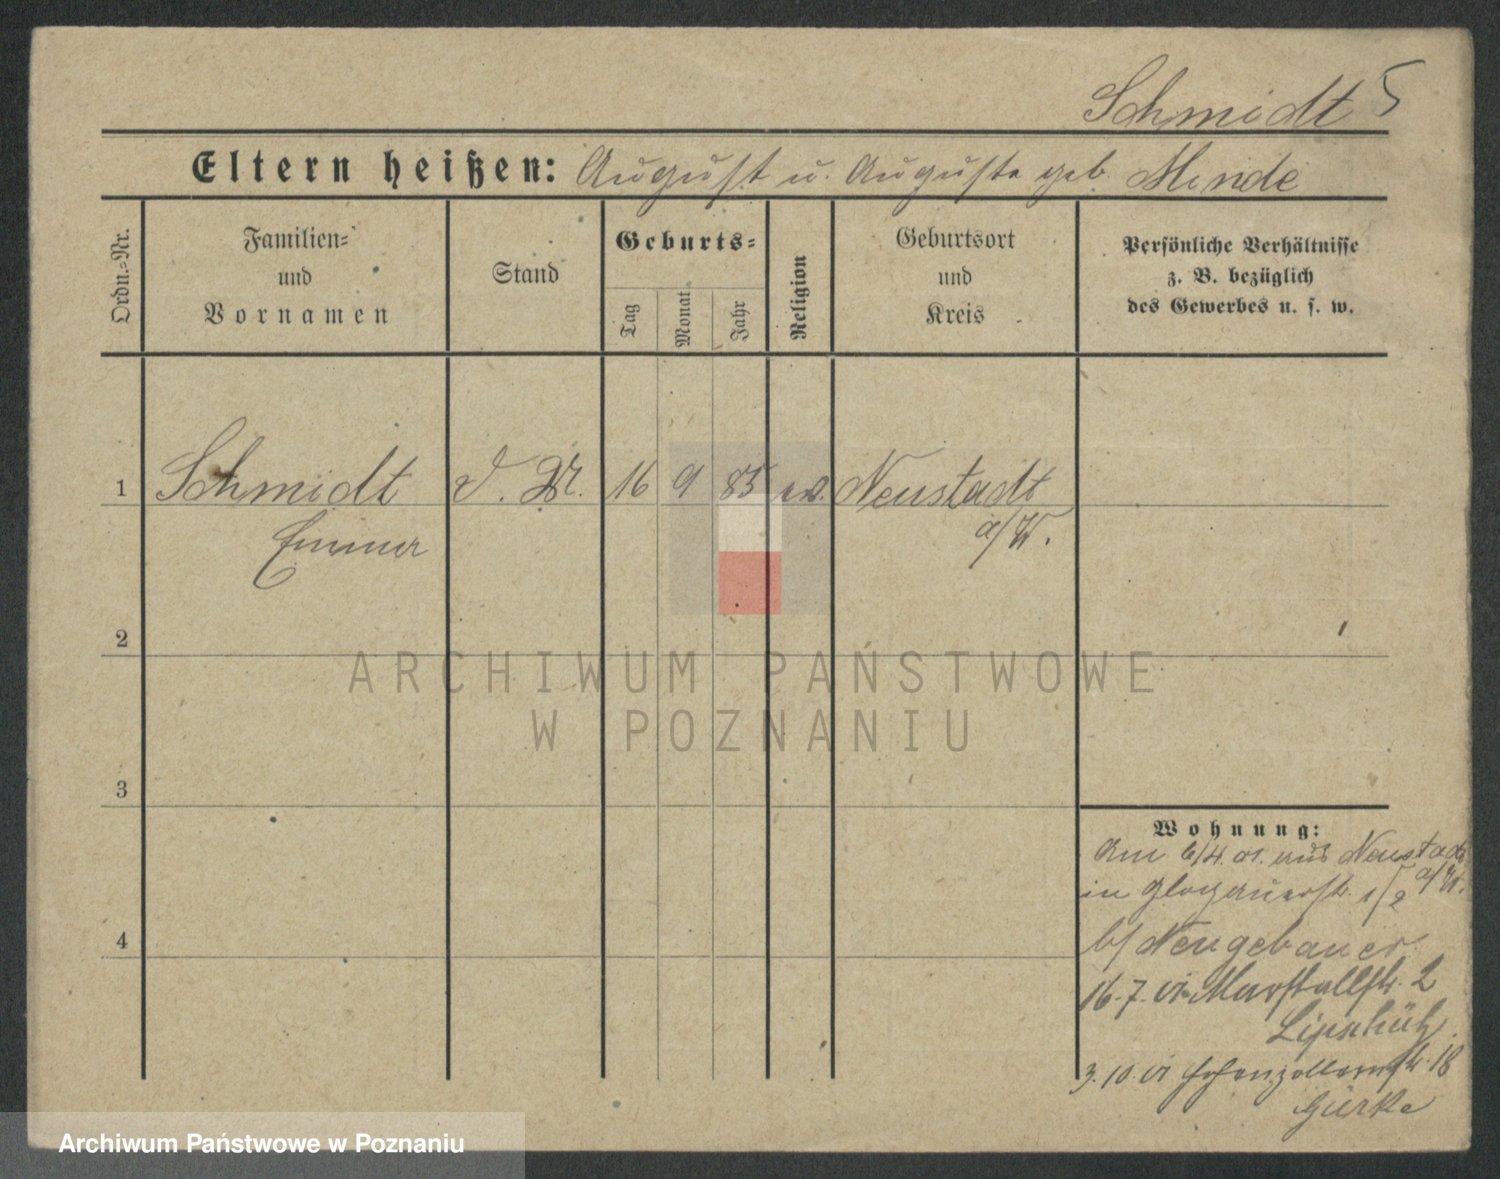 Schmidt 5
Eltern heißen: August u. Auguste geb. Minde
Ordn.=Nr.
Familien=
und
Vornamen
Stand
Geburts=
Tag
Monat
Jahr
Religion
Geburtsort
und
Kreis
Persönliche Verhältnisse
z. B. bezüglich
des Gewerbes u. s. w.
1 Schmidt d. M. 16 9 85 ev. Neustadt
Emma a/W.
2
3
4
Wohnung:
Am 6/4. 01. aus Neustadt
a/W.
in Glogauerstr. 1/2
b/ Neugebauer
16. 7. 01 Marstallstr. 2
Lipschütz
3. 10. 01 Hohenzollernstr. 18
Gierke
ARCHIWUM PAŃSTWOWE
W POZNANIU
Archiwum Państwowe w Poznaniu